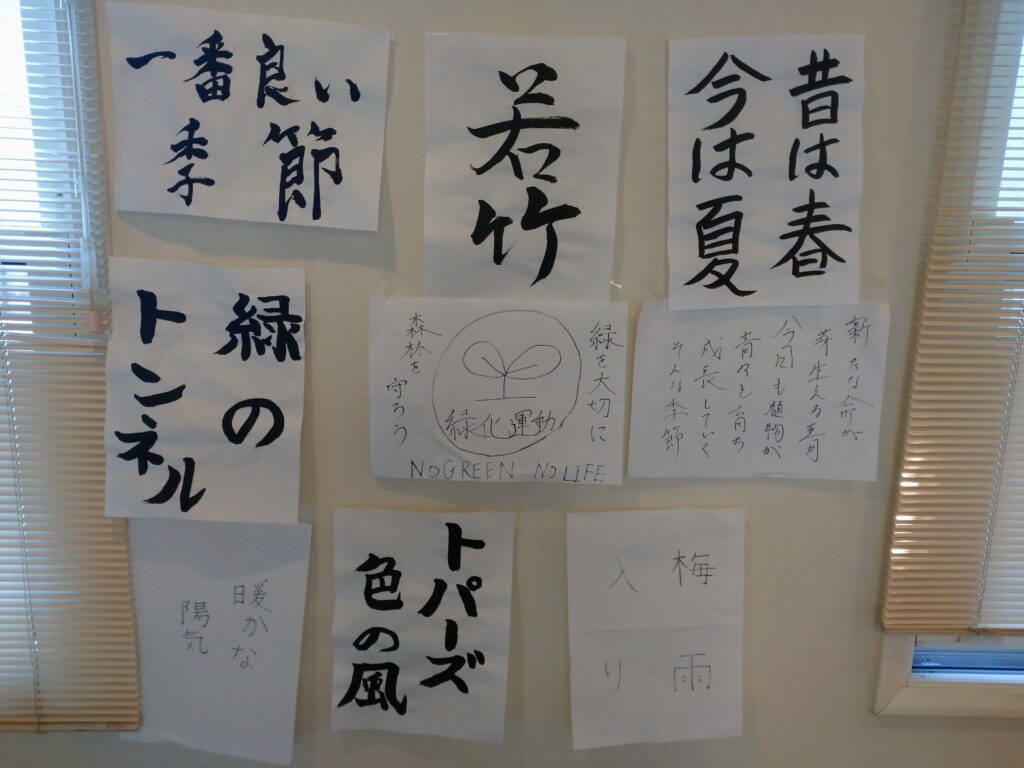 一番良い
季節
若竹
昔は春
今は夏
緑の
トンネル
緑を大切に
森林を守ろう
緑化運動
NO GREEN NO LIFE
新たな命が
芽生える五月
今日も植物が
青々と育ち
成長していく
そんな季節
暖かな
陽気
トパーズ
色の風
梅雨
入り